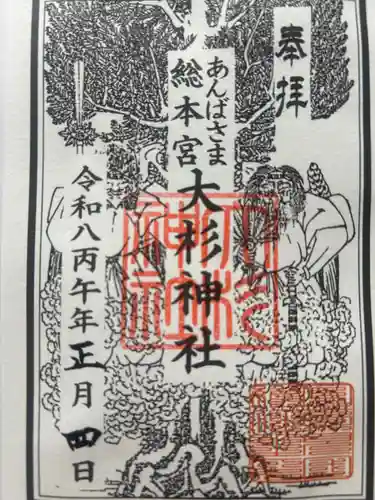 奉拝
あんばさま
総本宮
大杉神社
令和八丙午年正月四日